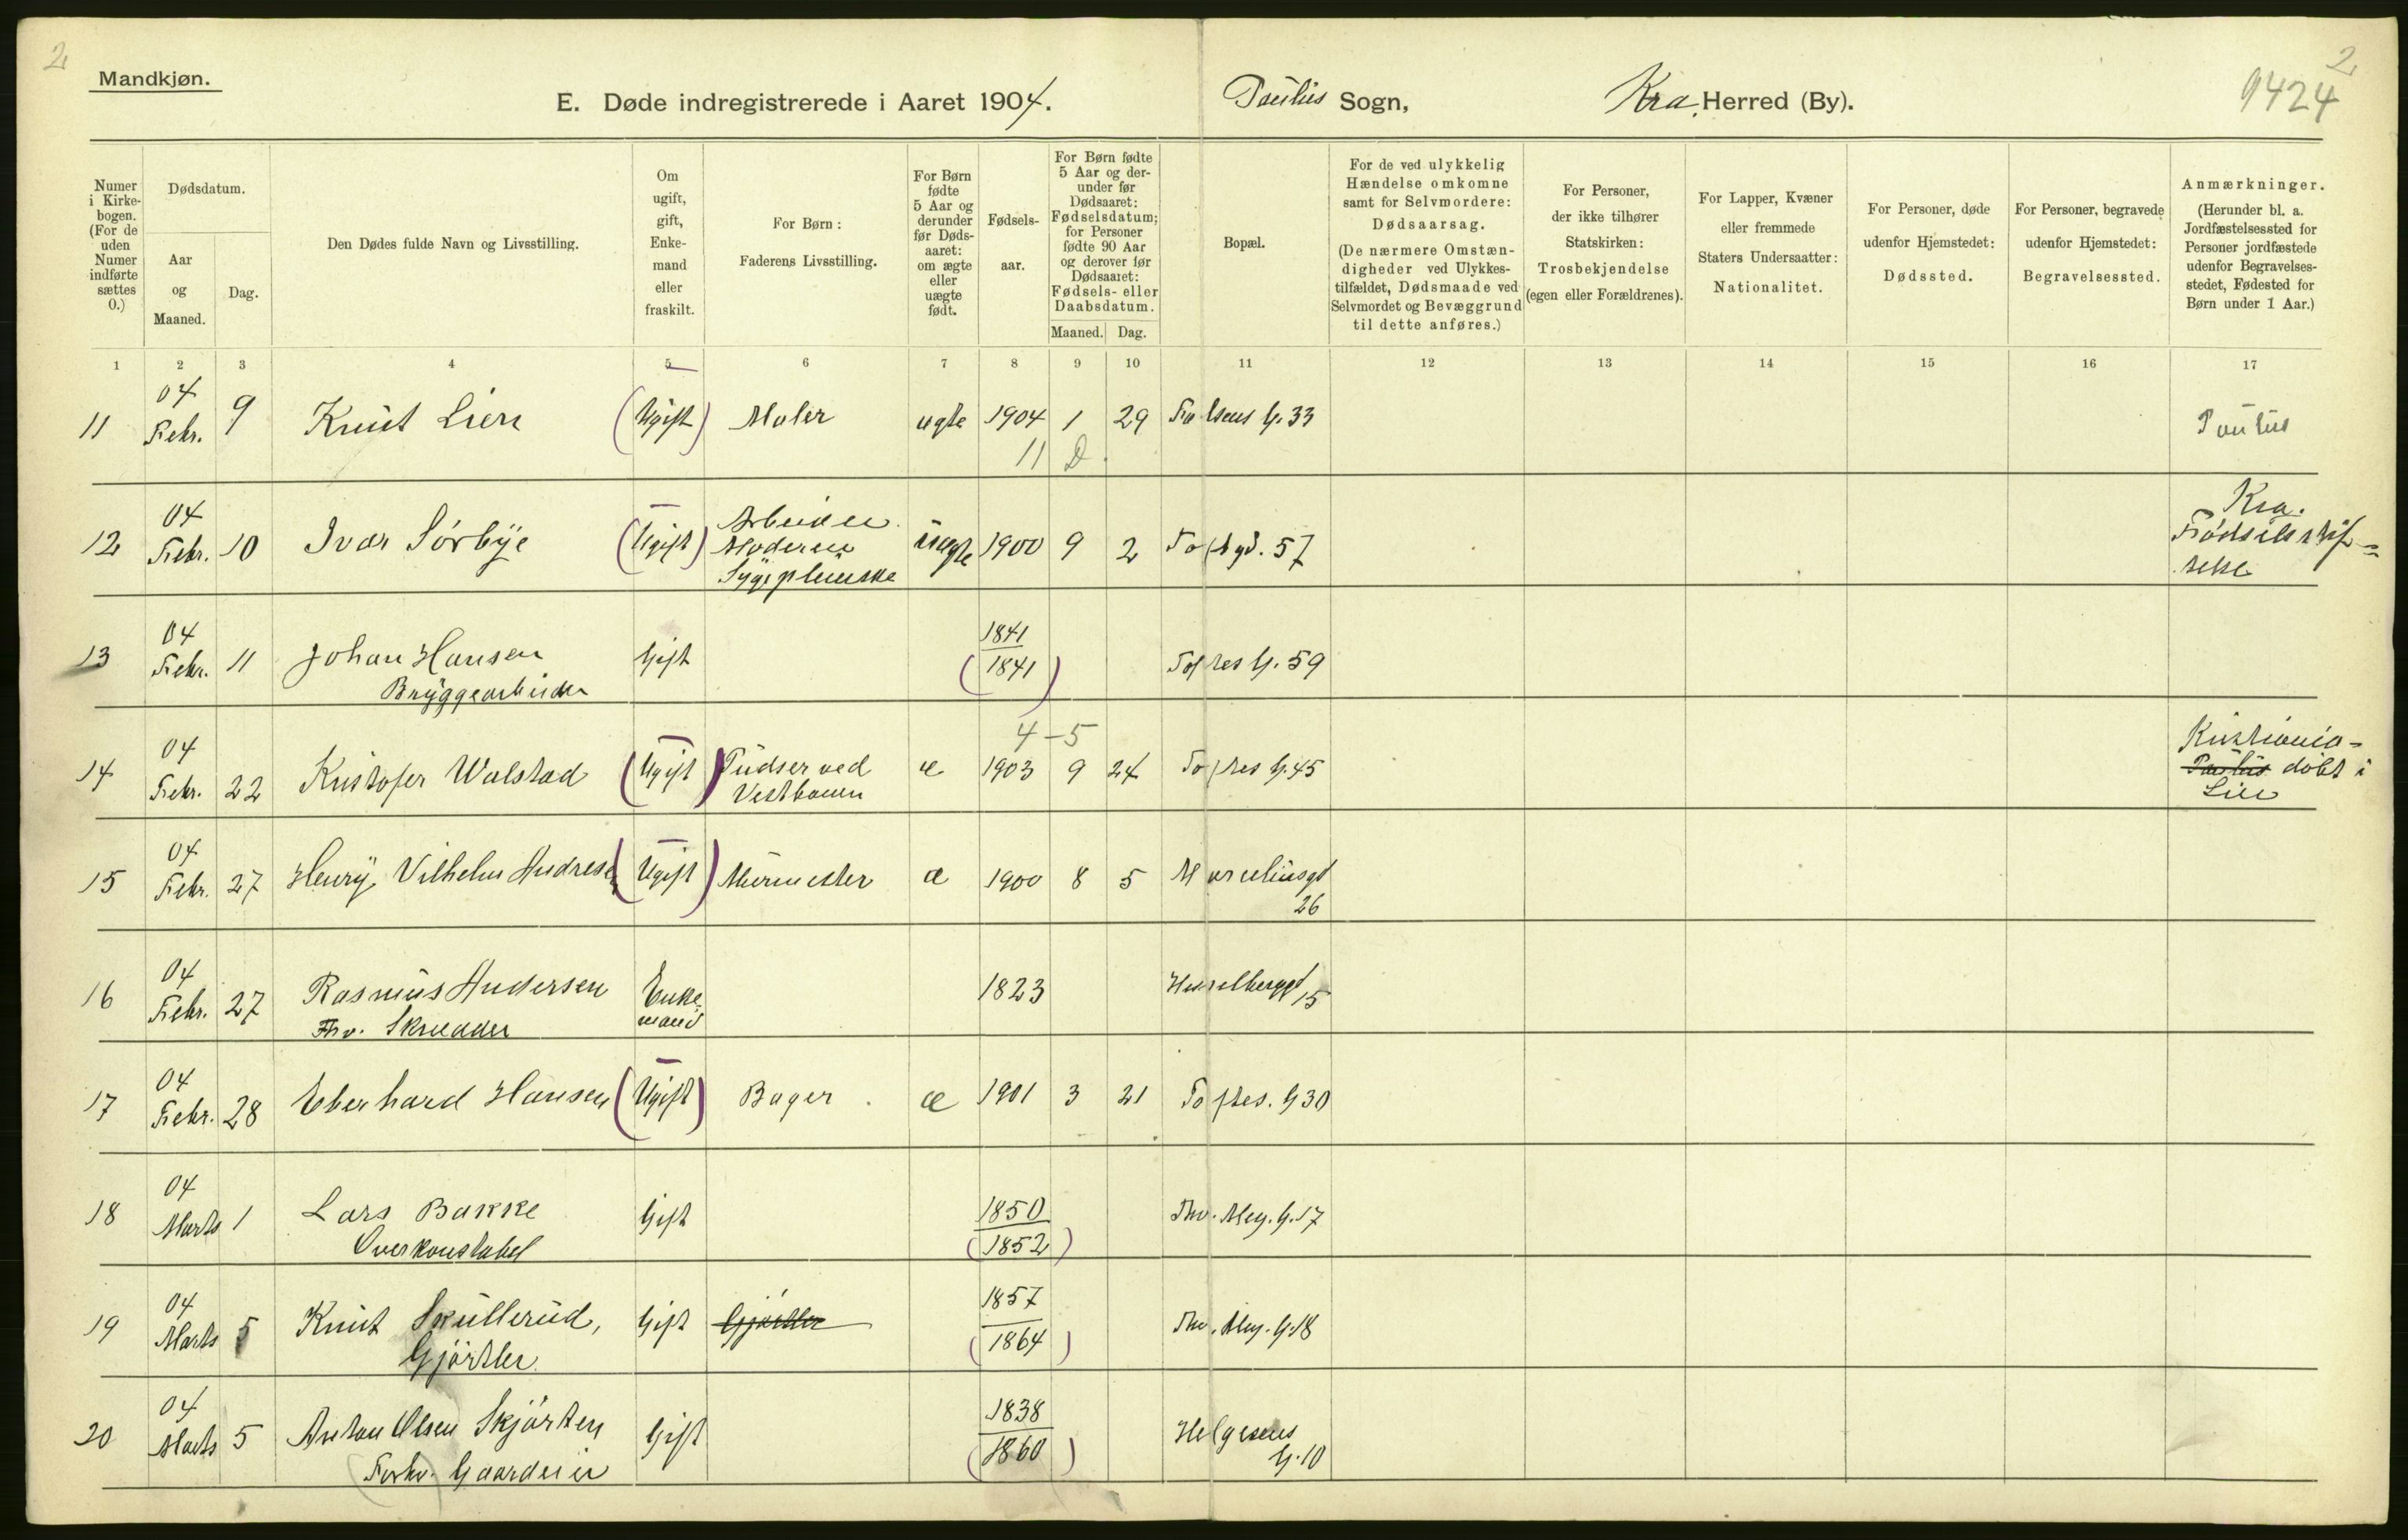 2
Mandkjøn.
E. Døde indregistrerede i Aaret 1904.
Paulus Sogn,
Kra. Herred (By).
2
9424
Numer i Kirke-bogen. (For de uden Numer indførte sættes 0.)
Dødsdatum.
Aar og Maaned.
Dag.
Den Dødes fulde Navn og Livsstilling.
Om ugift, gift, Enke-mand eller fraskilt.
For Børn: Faderens Livsstilling.
For Børn fødte 5 Aar og derunder før Døds-aaret: om ægte eller uægte født.
Fødsels-aar.
For Børn fødte 5 Aar og der-under før Dødsaaret: Fødselsdatum; for Personer fødte 90 Aar og derover før Dødsaaret: Fødsels- eller Daabsdatum.
Maaned. Dag.
Bopæl.
For de ved ulykkelig Hændelse omkomne samt for Selvmordere: Dødsaarsag. (De nærmere Omstæn-digheder ved Ulykkes-tilfældet, Dødsmaade ved Selvmordet og Bevæggrund til dette anføres.)
For Personer, der ikke tilhører Statskirken: Trosbekjendelse (egen eller Forældrenes).
For Lapper, Kvæner eller fremmede Staters Undersaatter: Nationalitet.
For Personer, døde udenfor Hjemstedet: Dødssted.
For Personer, begravede udenfor Hjemstedet: Begravelsessted.
Anmærkninger. (Herunder bl. a. Jordfæstelsessted for Personer jordfæstede udenfor Begravelses-stedet, Fødested for Børn under 1 Aar.)
1 2 3 4 5 6 7 8 9 10 11 12 13 14 15 16 17
11 04 Febr. 9 Knut Lien (Ugift) Maler ægte 1904 1 29 Falsens G. 33 Paulus
11 D.
12 04 Febr. 10 Ivar Sørbye (Ugift) Arbeider. Moderen Sygepleierske uægte 1900 9 2 Toftsgd. 57 Kra. Fødselsstif-telse
13 04 Febr. 11 Johan Hansen Gift 1841 (1841) Toftes G. 59
Bryggearbeider
4-5
14 04 Febr. 22 Kristofer Walstad (Ugift) Pudser ved Vestbanen æ 1903 9 24 Toftes G. 45 Kristiania- Paulus døbt i Lier
15 04 Febr. 27 Henry Vilhelm Andresen (Ugift) Murmester æ 1900 8 5 Marceliusgd 26
16 04 Febr. 27 Rasmus Andersen Enke-mand 1823 Hesselberggd 15
Frv. Skrædder
17 04 Febr. 28 Eberhard Hansen (Ugift) Bager. æ 1901 3 21 Toftes. G 30
18 04 Marts 1 Lars Bakke Gift 1850 (1852) Thv. Mey. G. 17
Overkonstabel
19 04 Marts 5 Knut Skullerud, Gift Gjørtler 1857 (1864) Thv. Mey. G. 18
Gjørtler
20 04 Marts 5 Anton Olsen Skjørten Gift 1838 (1860) Helgesens G. 10
(Forhv.) Gaardeier